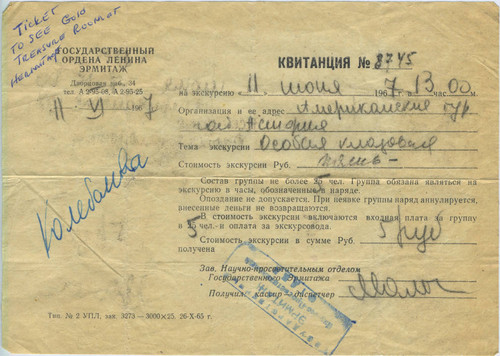 TICKET
TO SEE GOLD
TREASURE ROOM AT
HERMITAGE
ГОСУДАРСТВЕННЫЙ
ОРДЕНА ЛЕНИНА
ЭРМИТАЖ
Дворцовая наб. 34
тел. А 2-95-08, А 2-95-25
КВИТАНЦИЯ № 8745
11 VI 1967
на экскурсию 11 июня 1967 г. 13 час. 00
Организация и ее адрес Американские тур
Астория
Тема экскурсии Особая кладовая
Стоимость экскурсии Руб. пять —
Состав группы не более 5 чел. Группа обязана являться на
экскурсию в часы, обозначенные в наряде.
Опоздание не допускается. При неявке группы наряд аннулируется,
внесенные деньги не возвращаются.
В стоимость экскурсии включаются входная плата за группу
в 25 чел. и оплата за экскурсовода.
5
Стоимость экскурсии в сумме Руб. 5 руб
получена
Зав. Научно-просветительным отделом
Государственного Эрмитажа
Получил: кассир-диспетчер
Тип. № 2 УПЛ, зак. 3273—3000×25. 26-X-65 г.